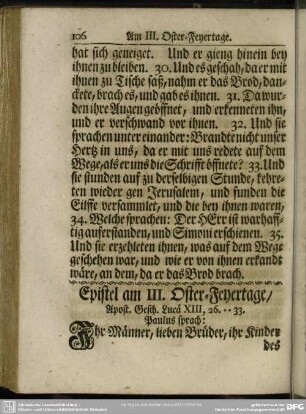 106 Am III. Oster-Feyertage.
hat sich geneiget. Und er gieng hinein bey
ihnen zu bleiben. 30. Und es geschah, da er mit
ihnen zu Tische saß, nahm er das Brod, dan-
ckete, brach es, und gab es ihnen. 31. Da wur-
den ihre Augen geöffnet, und erkenneten ihn,
und er verschwand vor ihnen. 32. Und sie
sprachen unter einander: Brandte nicht unser
Hertz in uns, da er mit uns redete auf dem
Wege, als er uns die Schrifft öffnete? 33. Und
sie stunden auf zu derselbigen Stunde, kehre-
ten wieder gen Jerusalem, und funden die
Eilffe versammlet, und die bey ihnen waren,
34. Welche sprachen: Der HErr ist warhaff-
tig auferstanden, und Simoni erschienen. 35.
Und sie erzehleten ihnen, was auf dem Wege
geschehen war, und wie er von ihnen erkandt
wäre, an dem, da er das Brod brach.
Epistel am III. Oster-Feyertage/
Apost. Gesch. Lucä XIII, 26. -- 33.
Paulus sprach:
Ihr Männer, lieben Brüder, ihr Kinder
des